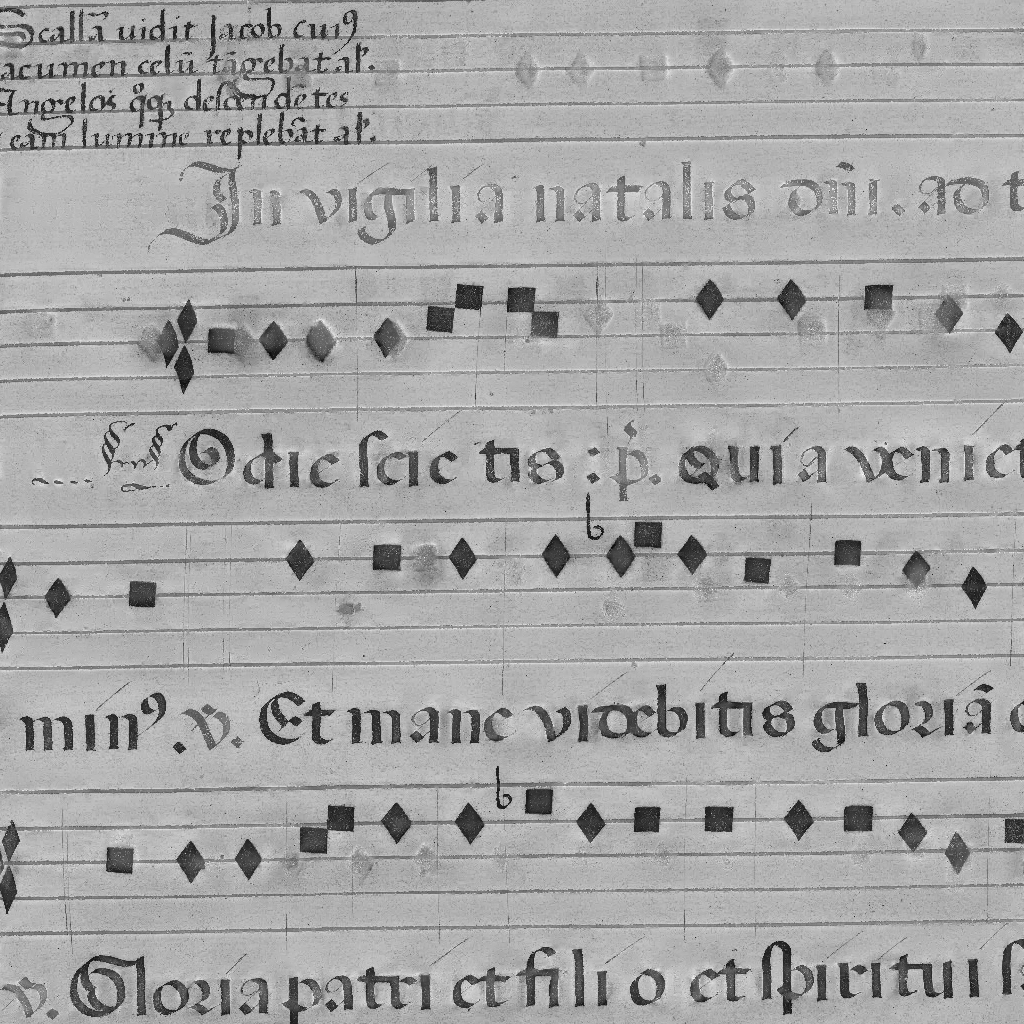 Scallā uidit Jacob cui9
acumen celū tāgebat al'.
Angelos q̊q̨ descendētes
eam lumine replebāt al'.
In vigilia natalis dn̄i. ad t
Odie scie tis : p̄. Quia veniet
min9. v̄. Et mane videbitis gloriā
v̄. Gloria patri et filio et spiritui s